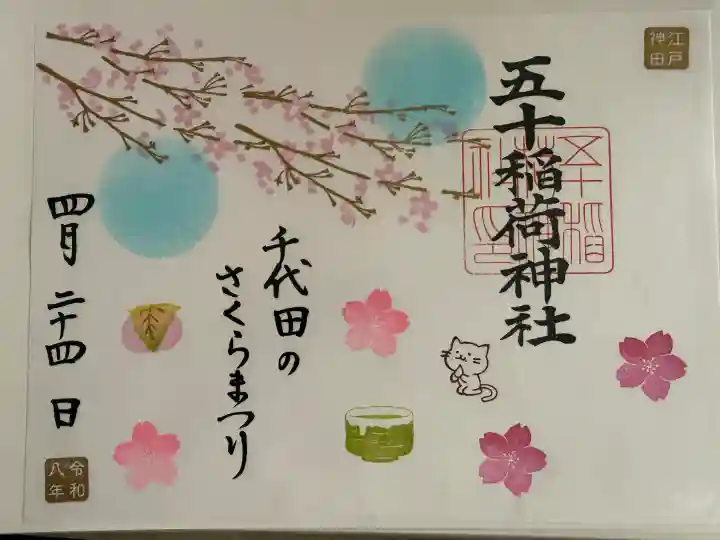 江戸
神田
五十稲荷神社
千代田の
さくらまつり
四月二十四日
令和
八年